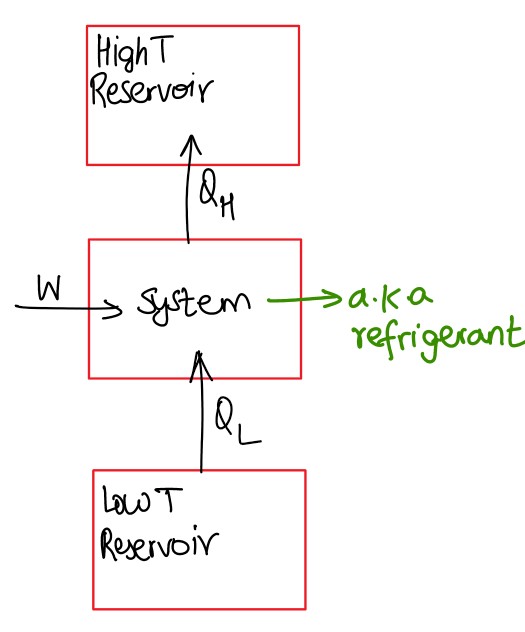 High T
Reservoir
Q_H
W
system
a.k.a
refrigerant
Q_L
Low T
Reservoir